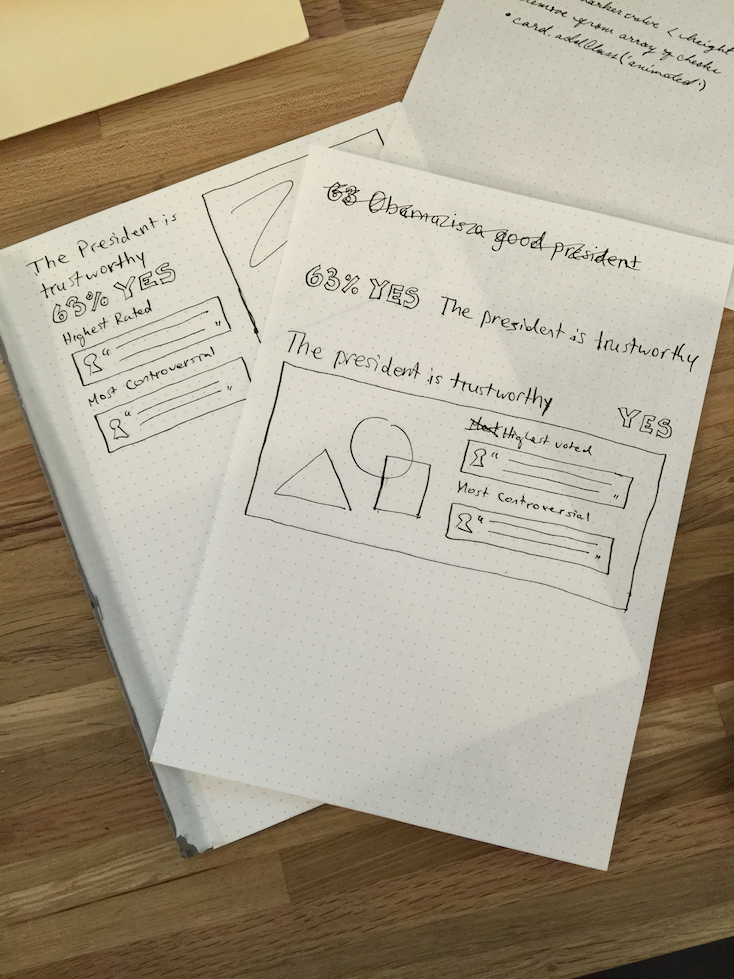 marker value < height
remove from array of checks
• card.addClass('animated')
The President is
trustworthy
63% YES
Highest Rated
“
”
Most Controversial
“
63 Obama is a good president
63% YES The president is trustworthy
The president is trustworthy YES
Most Highest voted
“
”
Most Controversial
“
”